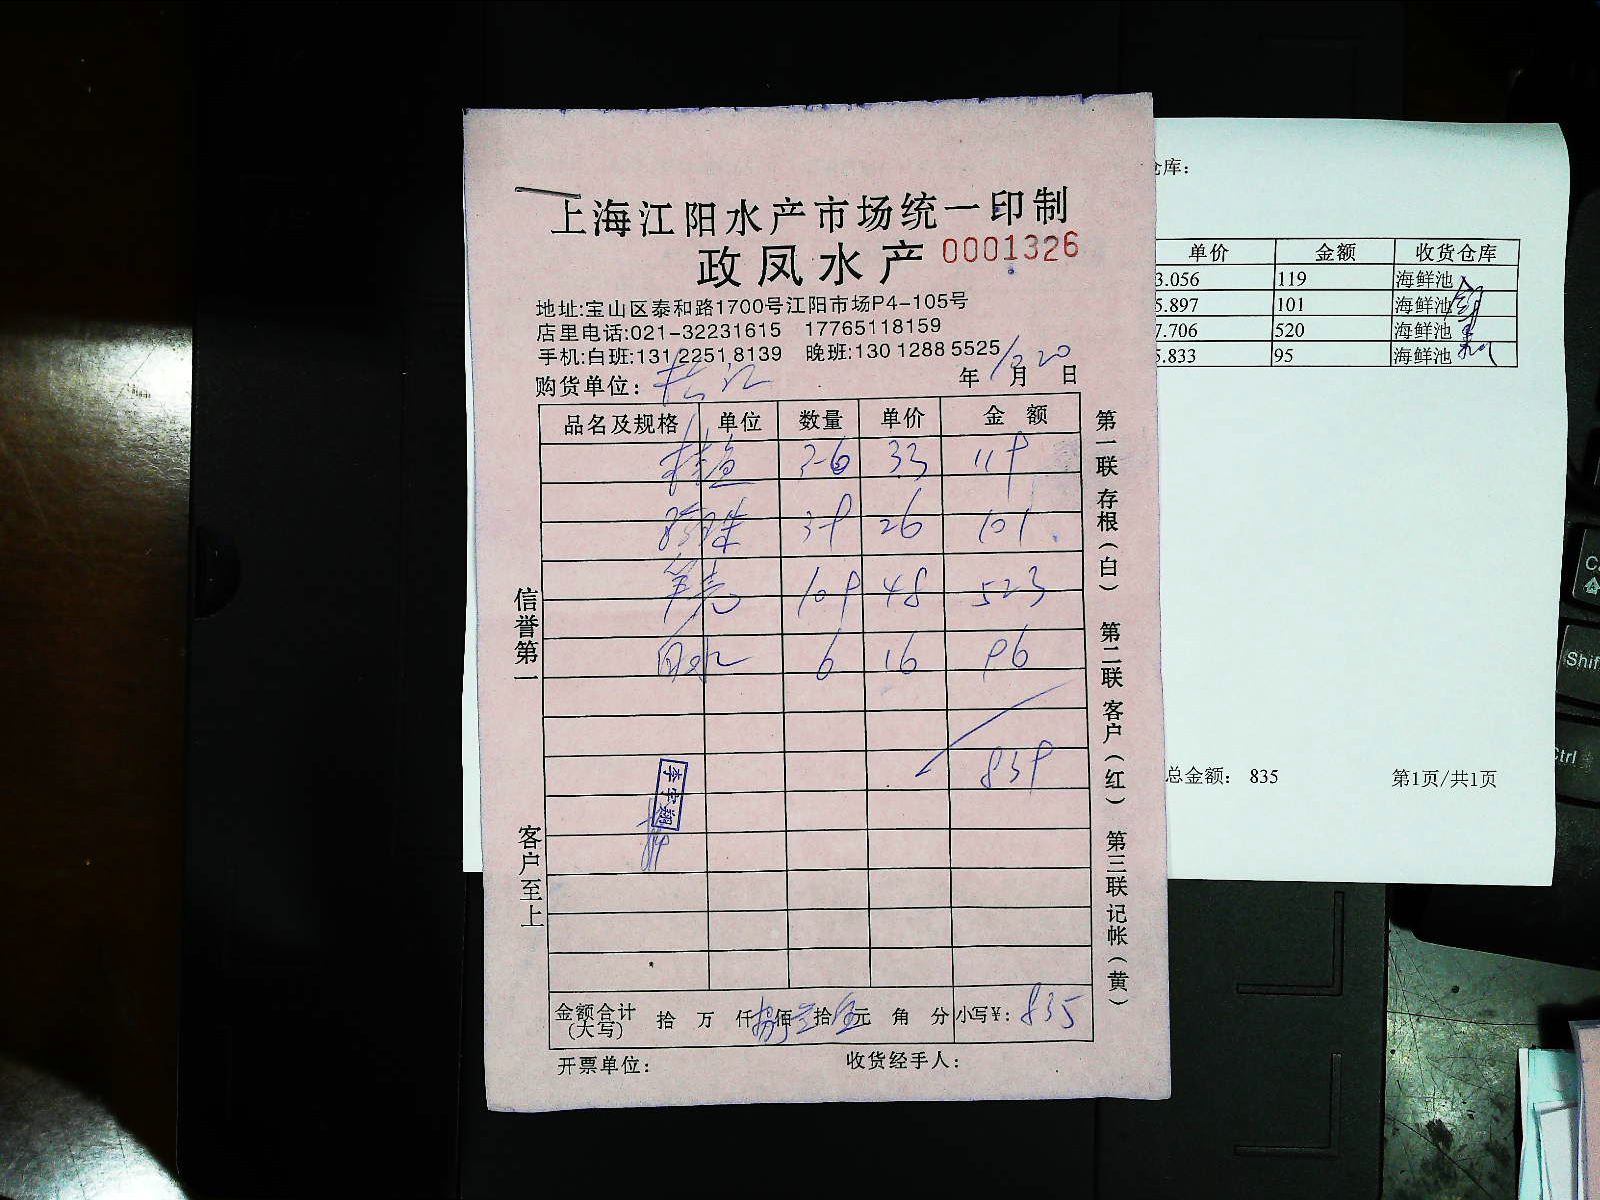 上海江阳水产市场统一印制
政凤水产 0001326
地址:宝山区泰和路1700号江阳市场P4-105号
店里电话:021-32231615 17765118159
手机:白班:131 2251 8139 晚班:130 1288 5525
购货单位: 松江 年 12 月 20 日
品名及规格 单位 数量 单价 金额
桂鱼 3-6 33 119
珍珠 3-9 26 101
笋壳 109 48 523
白水 6 16 96
839
李宇翔
金额合计(大写) 拾 万 仟 捌 佰 叁 拾 伍 元 角 分 小写¥: 835
开票单位: 收货经手人:
信誉第一
客户至上
第一联存根(白) 第二联客户(红) 第三联记帐(黄)
仓库:
单价 金额 收货仓库
3.056 119 海鲜池
5.897 101 海鲜池
7.706 520 海鲜池
5.833 95 海鲜池
总金额: 835 第1页/共1页
Shif
Ctrl